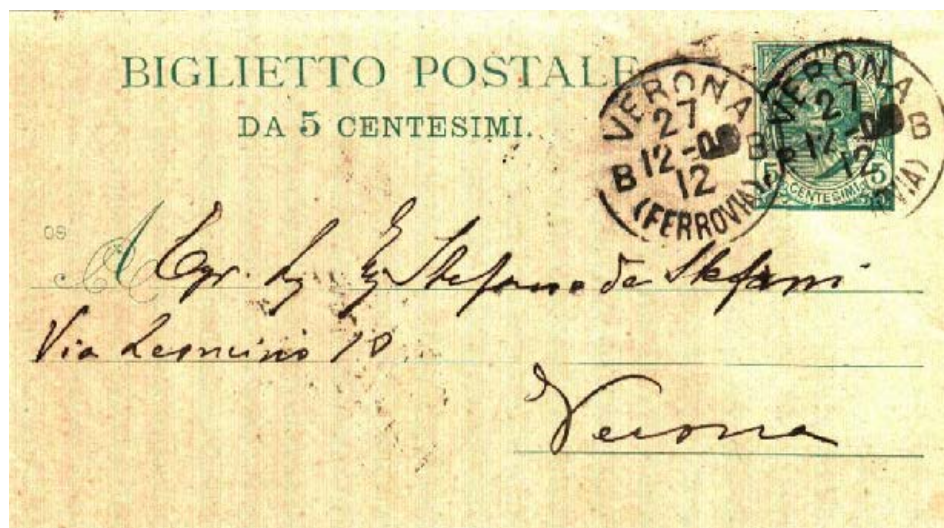 BIGLIETTO POSTALE
DA 5 CENTESIMI.
VERONA
27
12-0
B B
12
(FERROVIA)
VERONA
27
12-0
B
12
5 CENTESIMI 5
09
A Egr. Stefano de Stefani
Via Leoncino 10
Verona